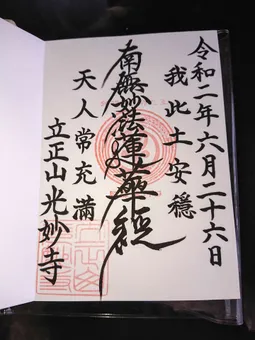 令和二年六月二十六日
我此土安穏
南無妙法蓮華経
天人常充満
立正山光妙寺